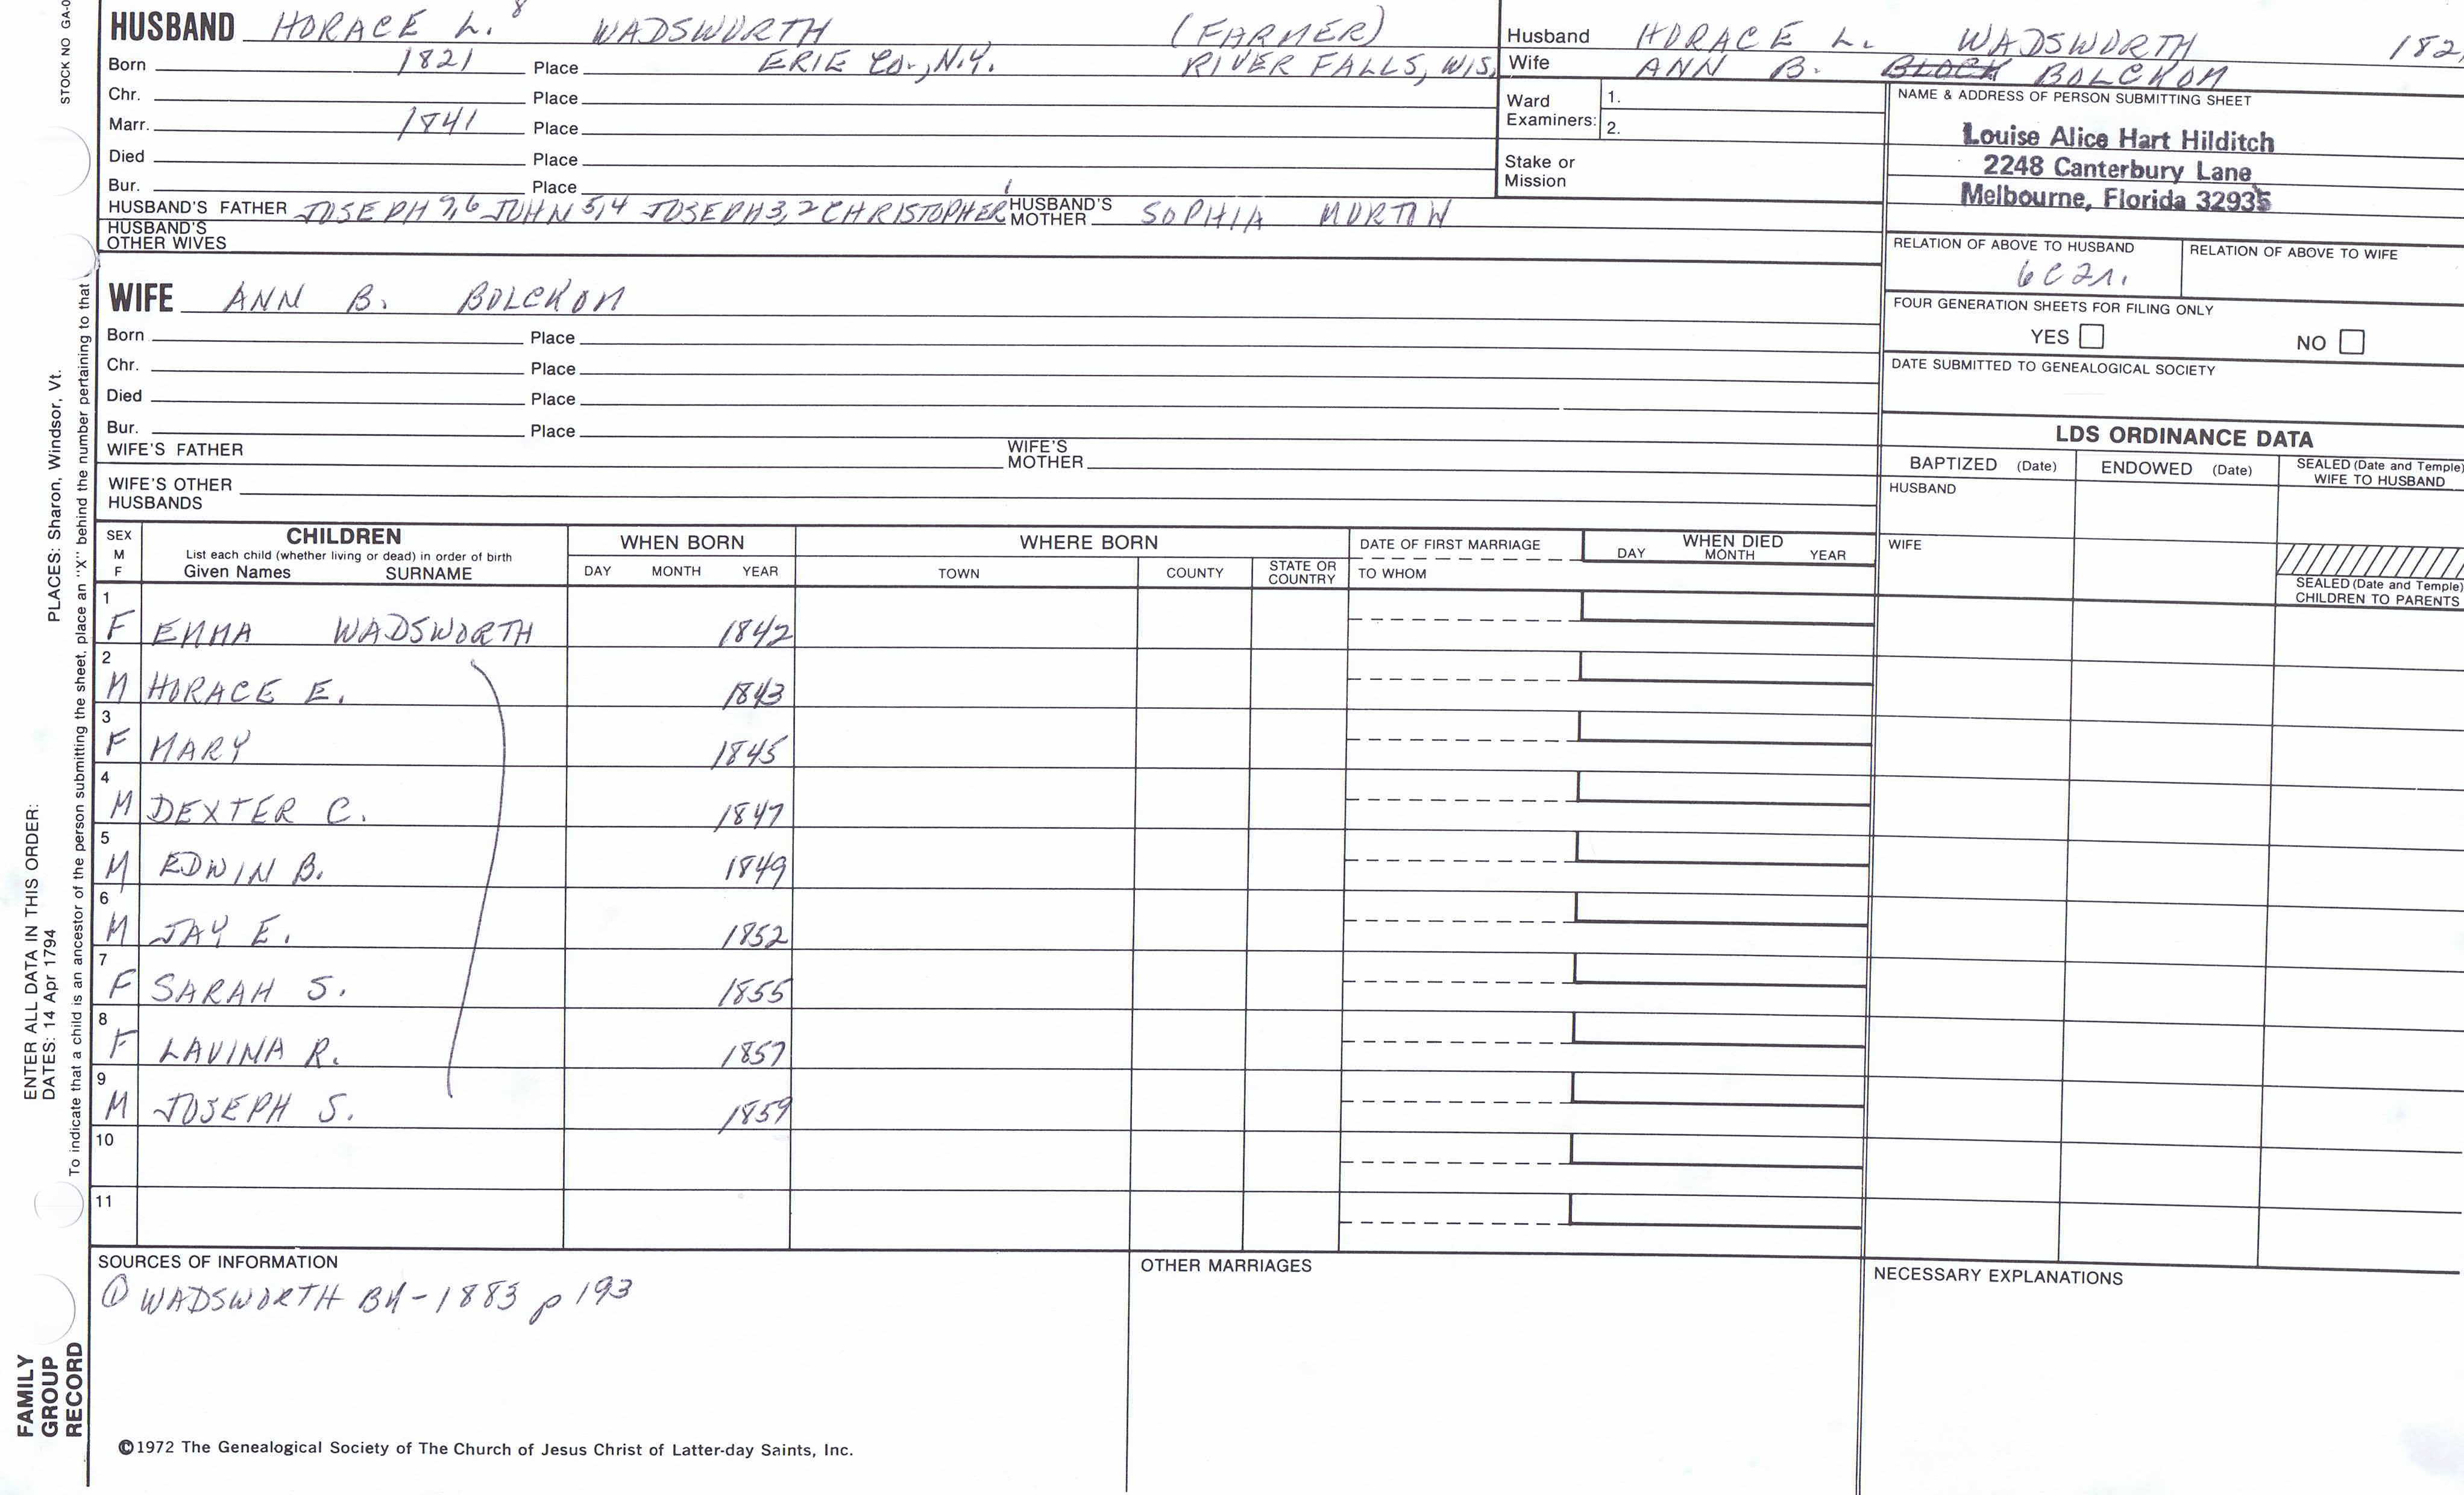 STOCK NO GA-0
HUSBAND HORACE L. 8 WADSWORTH (FARMER)
Born 1821 Place ERIE CO., N.Y. RIVER FALLS, WIS.
Chr. Place
Marr. 1841 Place
Died Place
Bur. Place
HUSBAND'S FATHER JOSEPH 7,6 JOHN 5,4 JOSEPH 3,2 CHRISTOPHER 1 HUSBAND'S MOTHER SOPHIA MORTON
HUSBAND'S OTHER WIVES
Husband HORACE L. WADSWORTH 182
Wife ANN B. BLOCK BOLCKOM
Ward Examiners: 1.
2.
Stake or Mission
NAME & ADDRESS OF PERSON SUBMITTING SHEET
Louise Alice Hart Hilditch
2248 Canterbury Lane
Melbourne, Florida 32935
RELATION OF ABOVE TO HUSBAND RELATION OF ABOVE TO WIFE
6C2r.
FOUR GENERATION SHEETS FOR FILING ONLY
YES NO
DATE SUBMITTED TO GENEALOGICAL SOCIETY
WIFE ANN B. BOLCKOM
Born Place
Chr. Place
Died Place
Bur. Place
WIFE'S FATHER WIFE'S MOTHER
WIFE'S OTHER HUSBANDS
LDS ORDINANCE DATA
BAPTIZED (Date) ENDOWED (Date) SEALED (Date and Temple) WIFE TO HUSBAND
HUSBAND
WIFE
SEALED (Date and Temple) CHILDREN TO PARENTS
SEX M F CHILDREN WHEN BORN WHERE BORN DATE OF FIRST MARRIAGE WHEN DIED
List each child (whether living or dead) in order of birth
Given Names SURNAME DAY MONTH YEAR TOWN COUNTY STATE OR COUNTRY TO WHOM DAY MONTH YEAR
1 F EMMA WADSWORTH 1842
2 M HORACE E. 1843
3 F MARY 1845
4 M DEXTER C. 1847
5 M EDWIN B. 1849
6 M JAY E. 1852
7 F SARAH S. 1855
8 F LAVINA R. 1857
9 M JOSEPH S. 1859
10
11
SOURCES OF INFORMATION OTHER MARRIAGES NECESSARY EXPLANATIONS
① WADSWORTH BK-1883 p 193
©1972 The Genealogical Society of The Church of Jesus Christ of Latter-day Saints, Inc.
ENTER ALL DATA IN THIS ORDER:
DATES: 14 Apr 1794 PLACES: Sharon, Windsor, Vt.
To indicate that a child is an ancestor of the person submitting the sheet, place an "X" behind the number pertaining to that
FAMILY
GROUP
RECORD